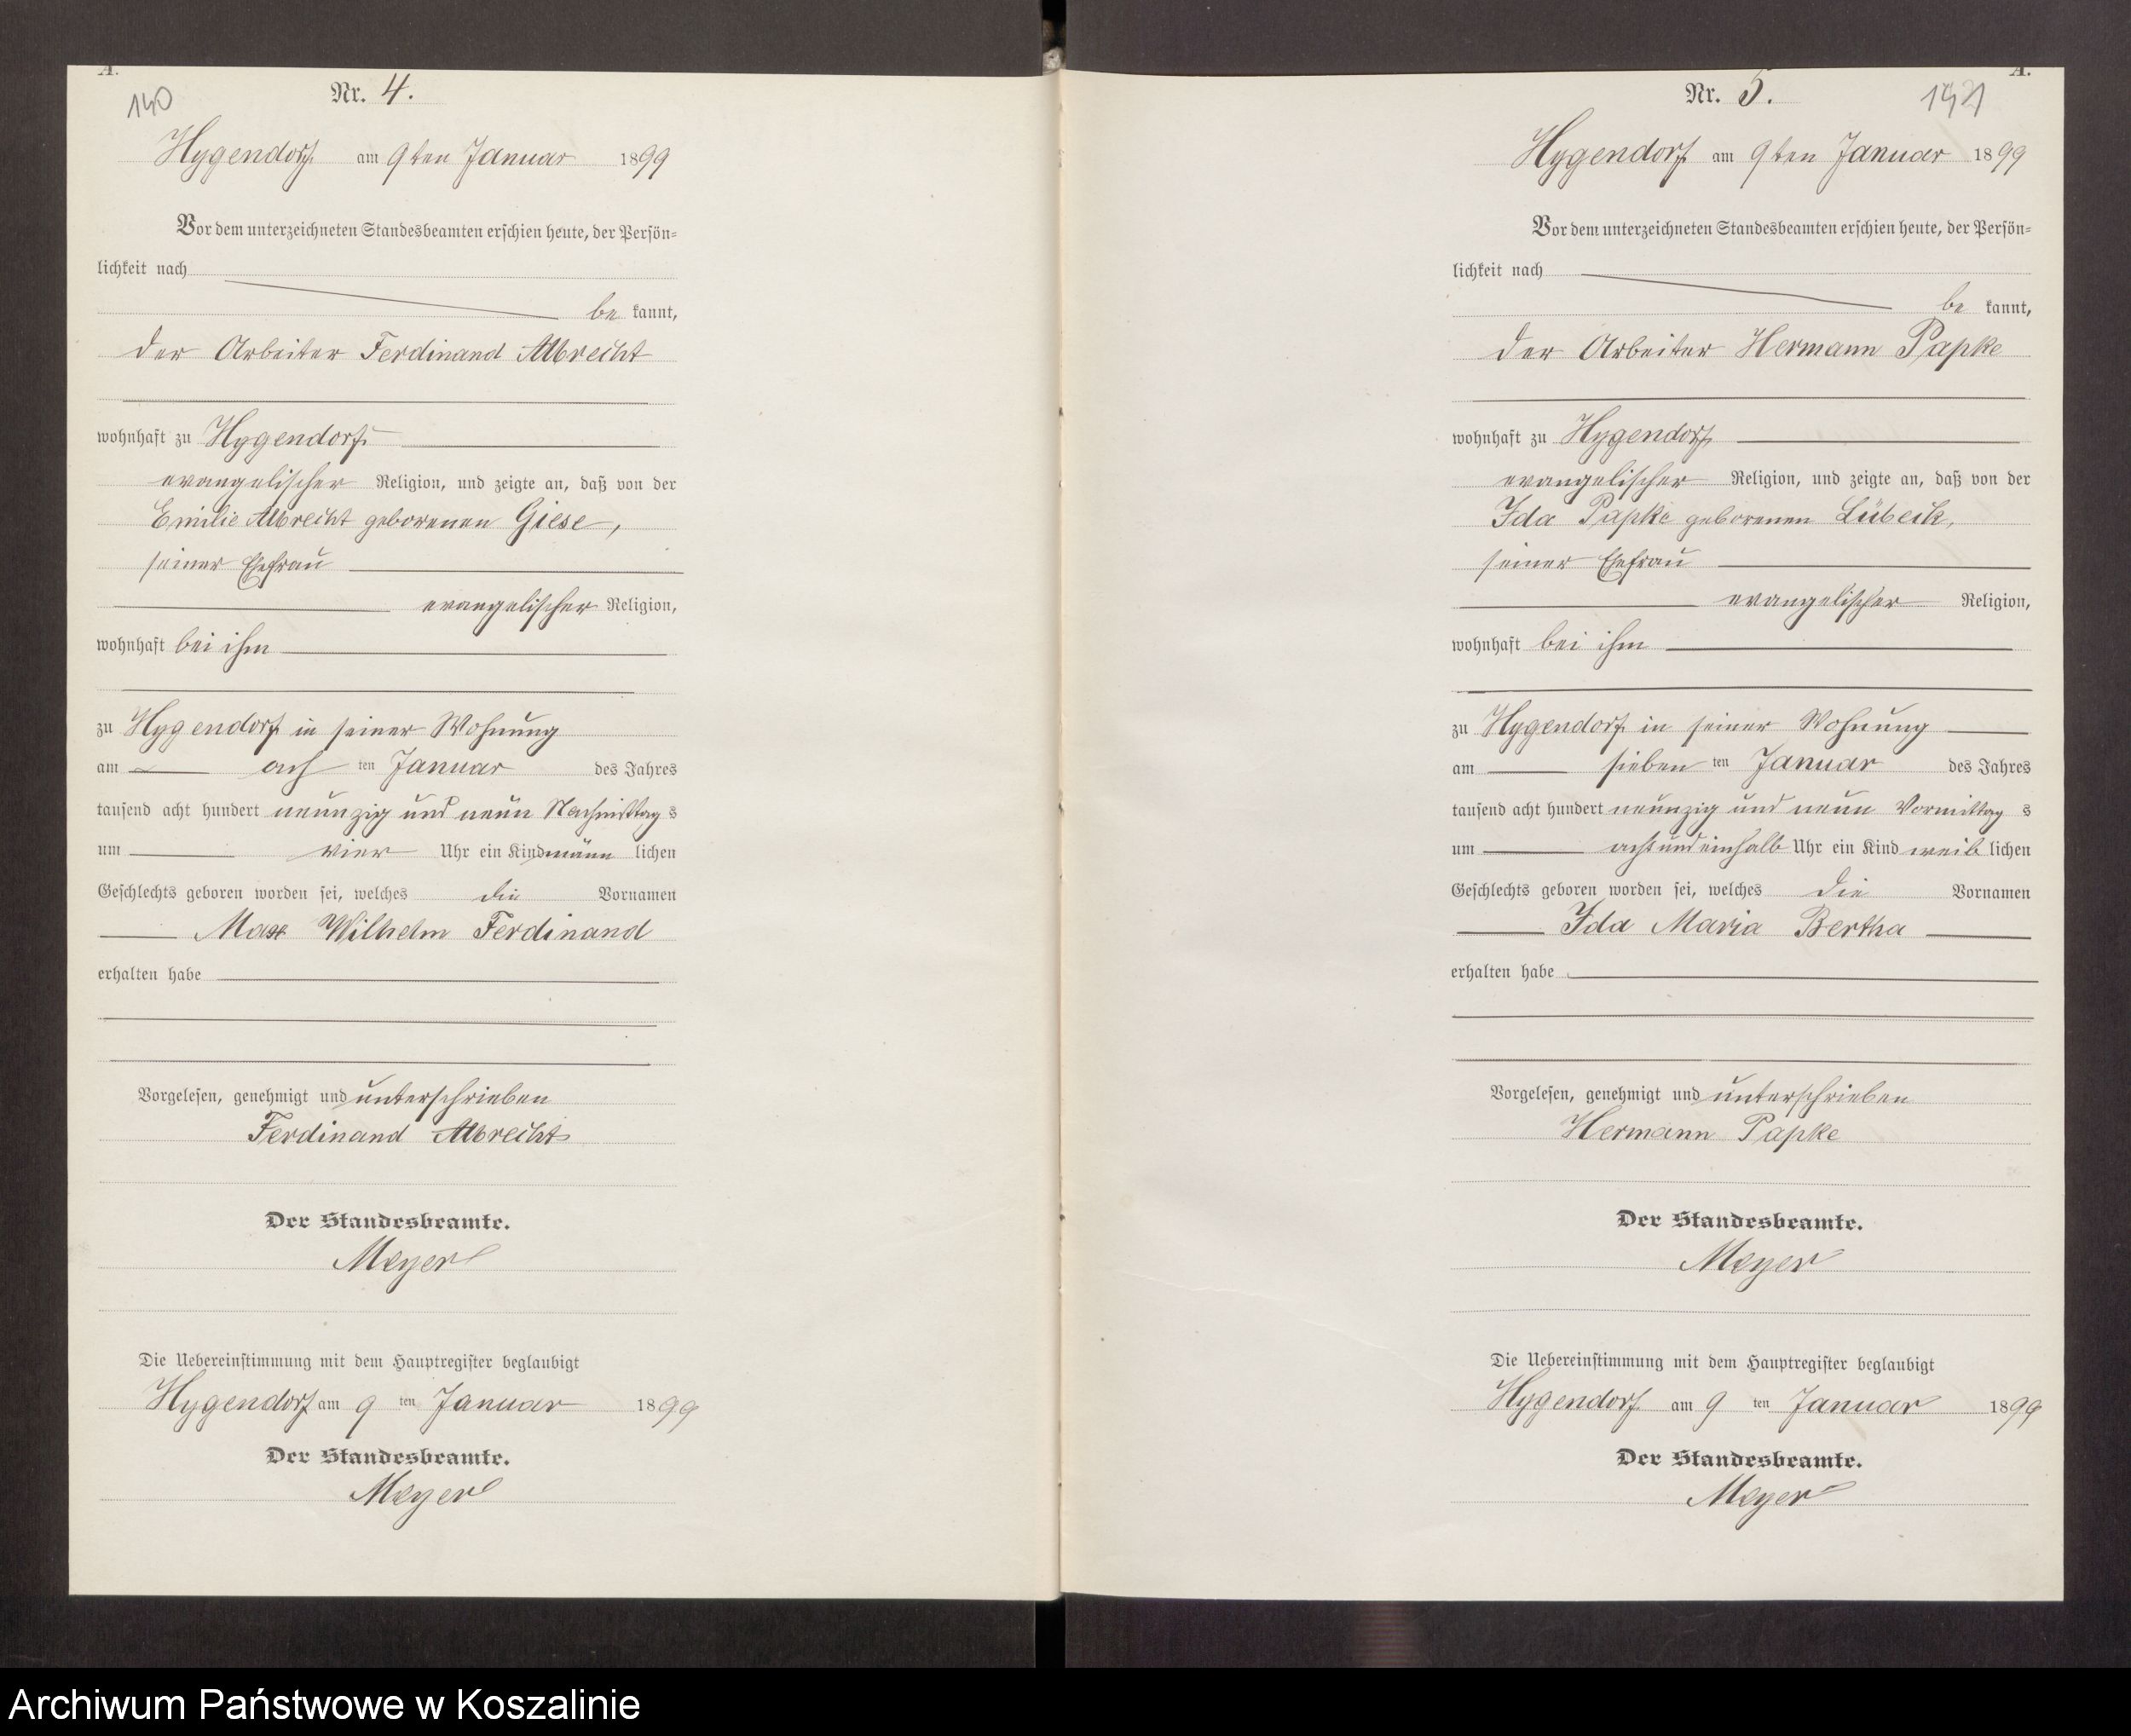 A.
140
Nr. 4.
Hygendorf am 9ten Januar 1899
Vor dem unterzeichneten Standesbeamten erschien heute, der Persön-
lichkeit nach
be kannt,
der Arbeiter Ferdinand Albrecht
wohnhaft zu Hygendorf
evangelischer Religion, und zeigte an, daß von der
Emilie Albrecht geborenen Giese,
seiner Ehefrau
evangelischer Religion,
wohnhaft bei ihm
zu Hygendorf in seiner Wohnung
am ach ten Januar des Jahres
tausend acht hundert neunzig und neun Nachmittag s
um vier Uhr ein Kind männ lichen
Geschlechts geboren worden sei, welches die Vornamen
Max Wilhelm Ferdinand
erhalten habe
Vorgelesen, genehmigt und unterschrieben
Ferdinand Albrecht
Der Standesbeamte.
Meyer
Die Uebereinstimmung mit dem Hauptregister beglaubigt
Hygendorf am 9 ten Januar 1899
Der Standesbeamte.
Meyer
A.
141
Nr. 5.
Hygendorf am 9ten Januar 1899
Vor dem unterzeichneten Standesbeamten erschien heute, der Persön-
lichkeit nach
be kannt,
der Arbeiter Hermann Papke
wohnhaft zu Hygendorf
evangelischer Religion, und zeigte an, daß von der
Ida Papke geborenen Lübeck,
seiner Ehefrau
evangelischer Religion,
wohnhaft bei ihm
zu Hygendorf in seiner Wohnung
am sieben ten Januar des Jahres
tausend acht hundert neunzig und neun Vormittag s
um acht und einhalb Uhr ein Kind weib lichen
Geschlechts geboren worden sei, welches die Vornamen
Ida Maria Bertha
erhalten habe
Vorgelesen, genehmigt und unterschrieben
Hermann Papke
Der Standesbeamte.
Meyer
Die Uebereinstimmung mit dem Hauptregister beglaubigt
Hygendorf am 9 ten Januar 1899
Der Standesbeamte.
Meyer
Archiwum Państwowe w Koszalinie